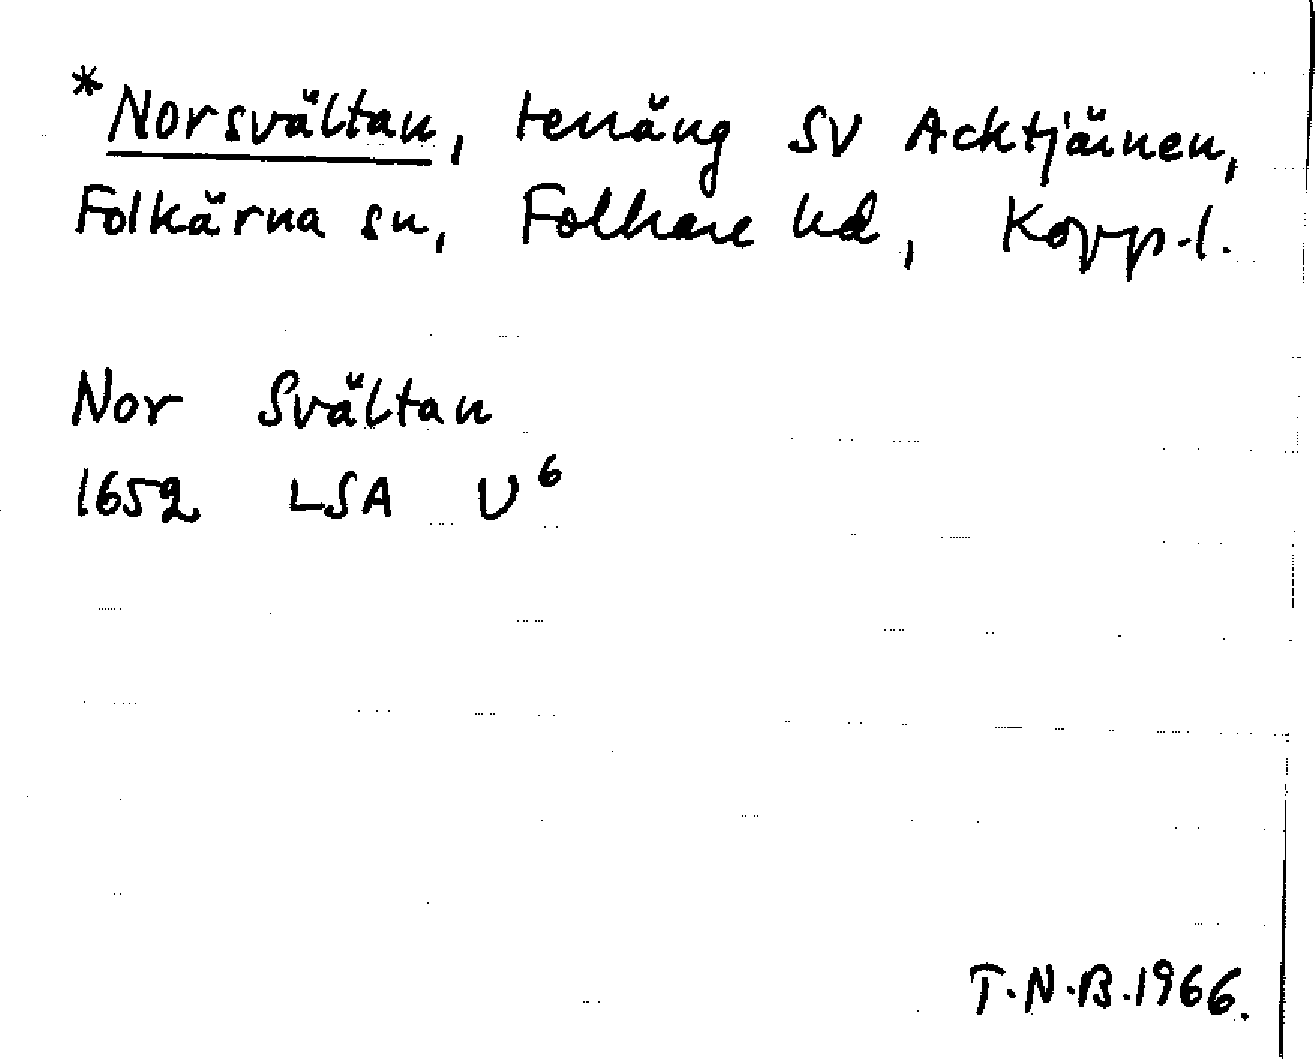 *Norsvältan, terräng SV Acktjärnen,
Folkärna sn, Folkare hd, Kopp.l.
Nor Svältan
1652 LSA U⁶
T.N.B.1966.